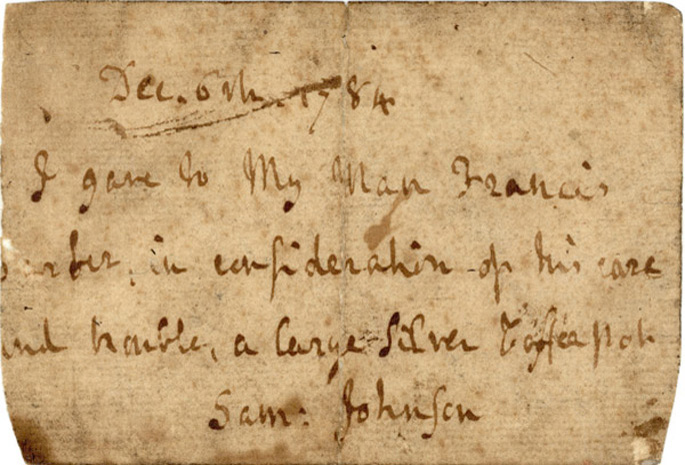 Dec. 6th. 1784
I gave to My Man Francis
arber, in consideration of his care
and trouble, a large Silver Coffee pot
Sam: Johnson